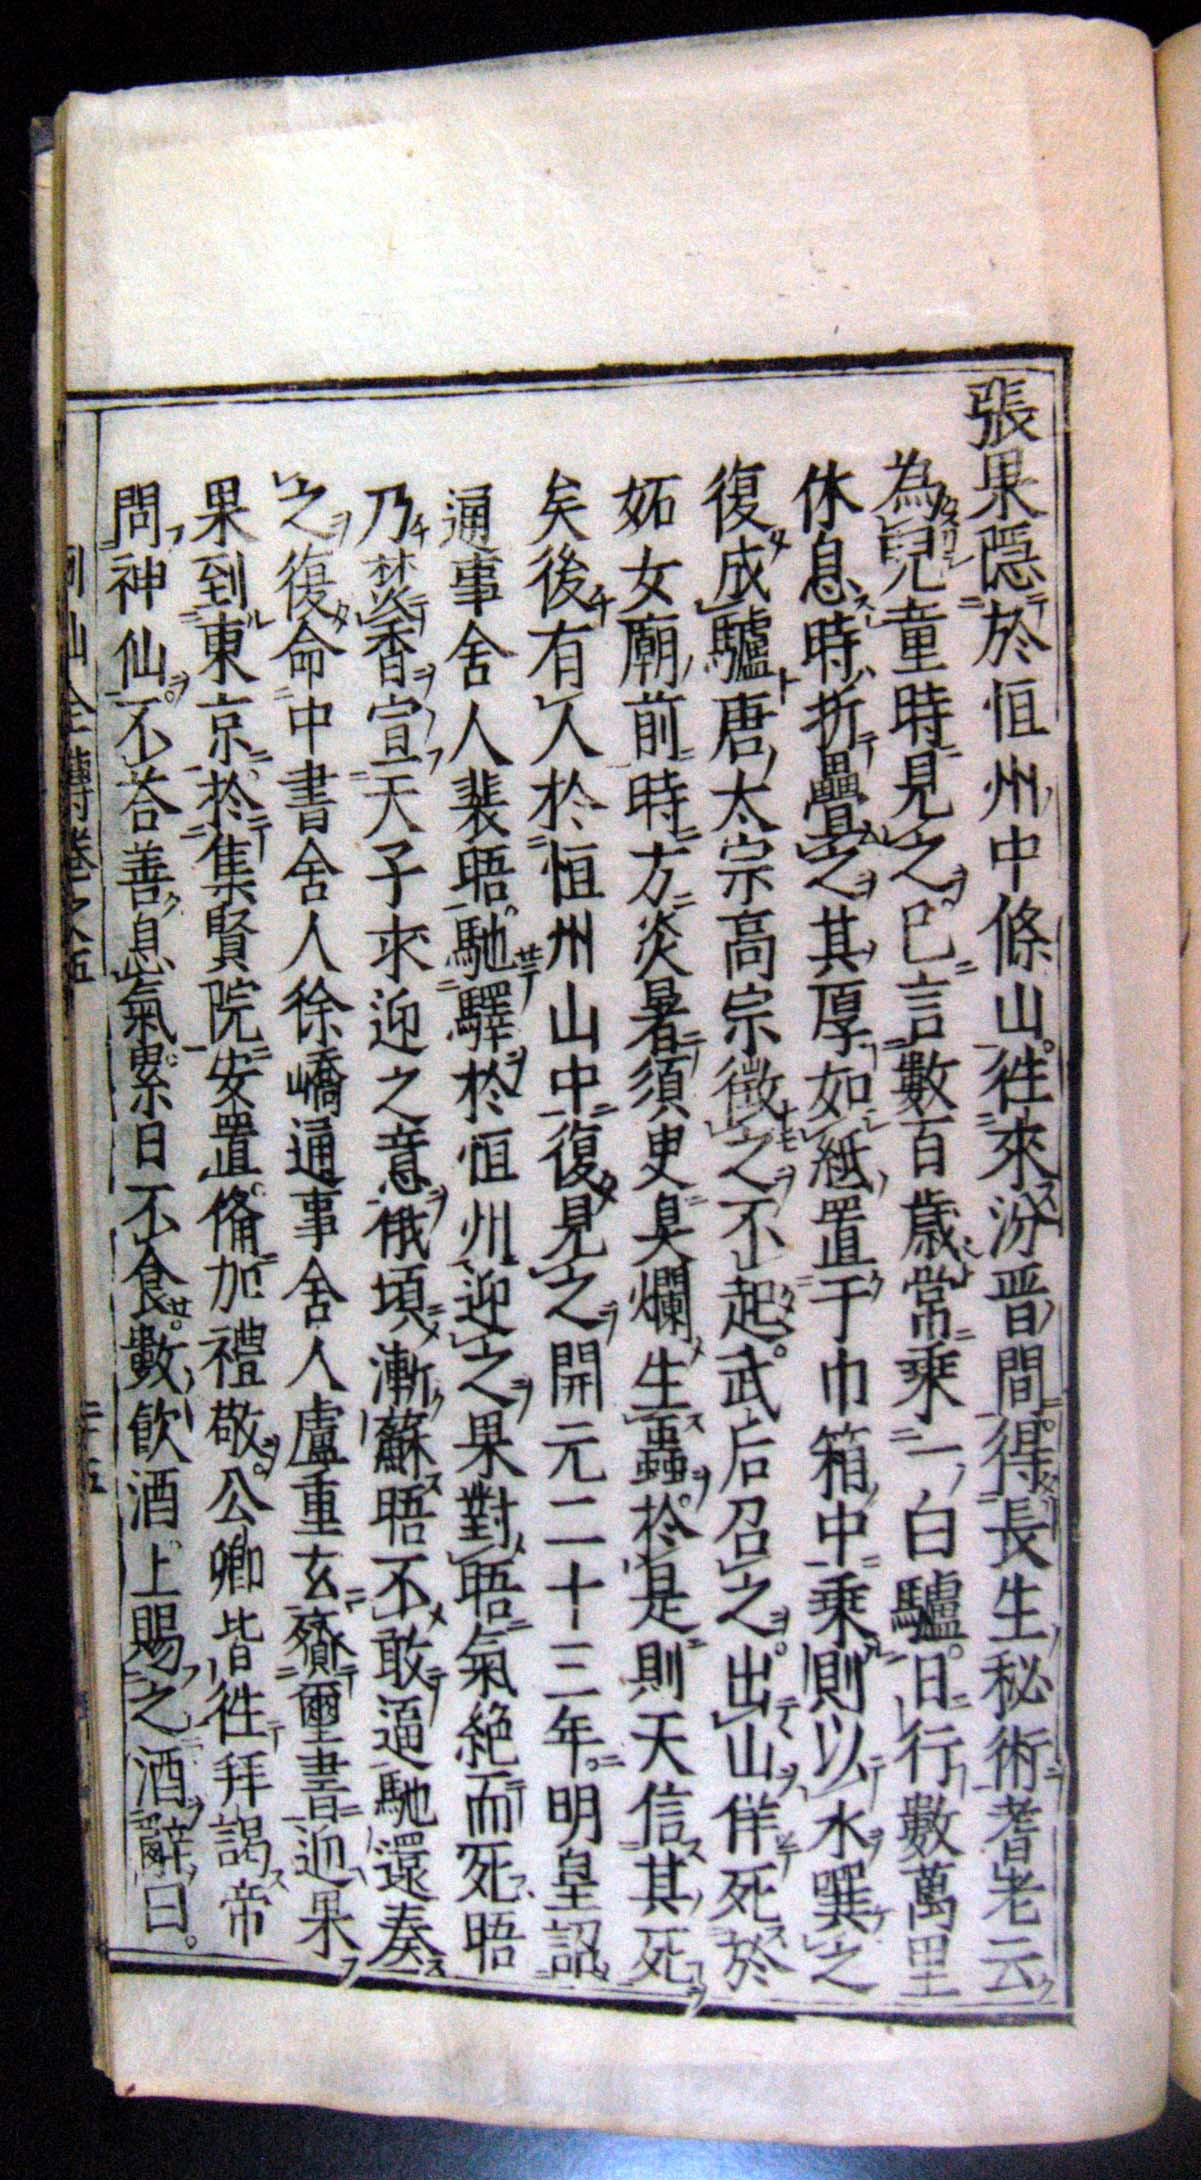 張果隱於恒州中條山徃來汾晋間得長生秘術耆老云
為兒童時見之已言數百歳常乘一白驢日行數萬里
休息時折疊之其厚如紙置于巾箱中乘則以水噀之
復成驢唐太宗高宗徵之不起武后召之出山佯死於
妬女廟前時方炎暑須叟臭爛生蟲於是則天信其死
矣後有人於恒州山中復見之開元二十三年明皇詔
通事舎人裴晤馳驛於恒州迎之果對晤氣絶而死晤
乃焚香宣天子求迎之意俄頃漸蘇晤不敢逼馳還奏
之復命中書舎人徐嶠通事舎人盧重玄齎璽書迎果
果到東京於集賢院安置備加禮敬公卿皆徃拜謁帝
問神仙不荅善息氣累日不食數飲酒上賜之酒辭曰
列仙全傳巻之五
二十五